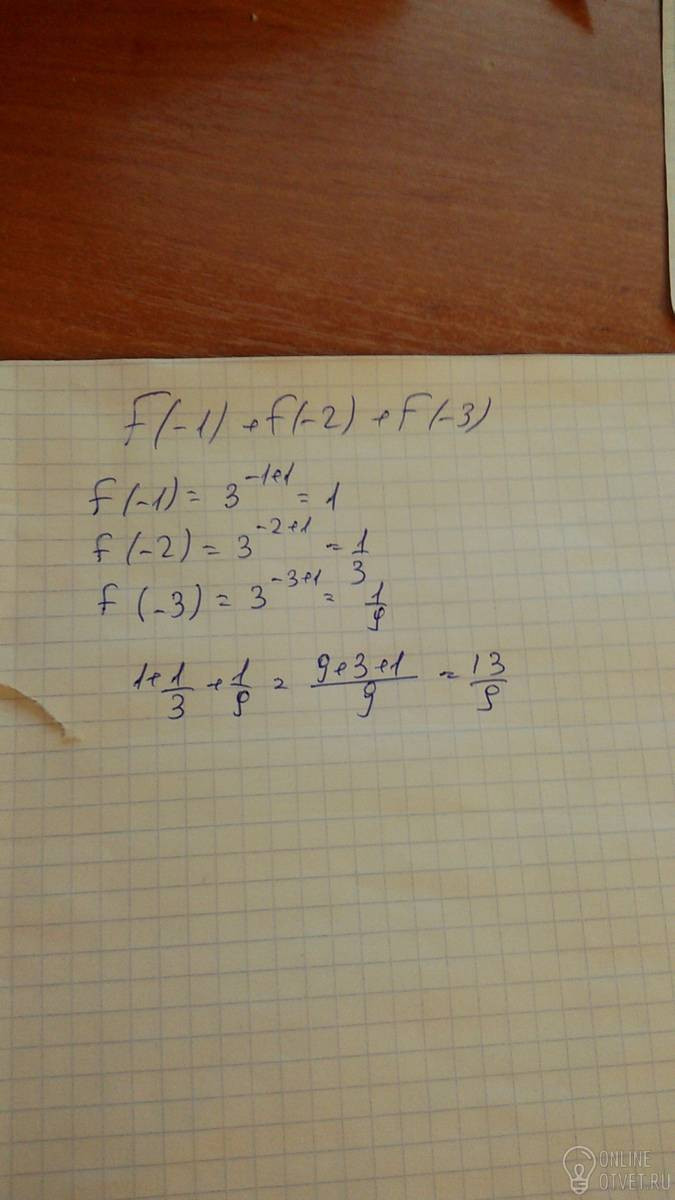 F(-1) + f(-2) + F(-3)
f(-1) = 3^{-1+1} = 1
f(-2) = 3^{-2+1} = \frac{1}{3}
f(-3) = 3^{-3+1} = \frac{1}{9}
1+\frac{1}{3} + \frac{1}{9} = \frac{9+3+1}{9} = \frac{13}{9}
ONLINE
OTVET.RU